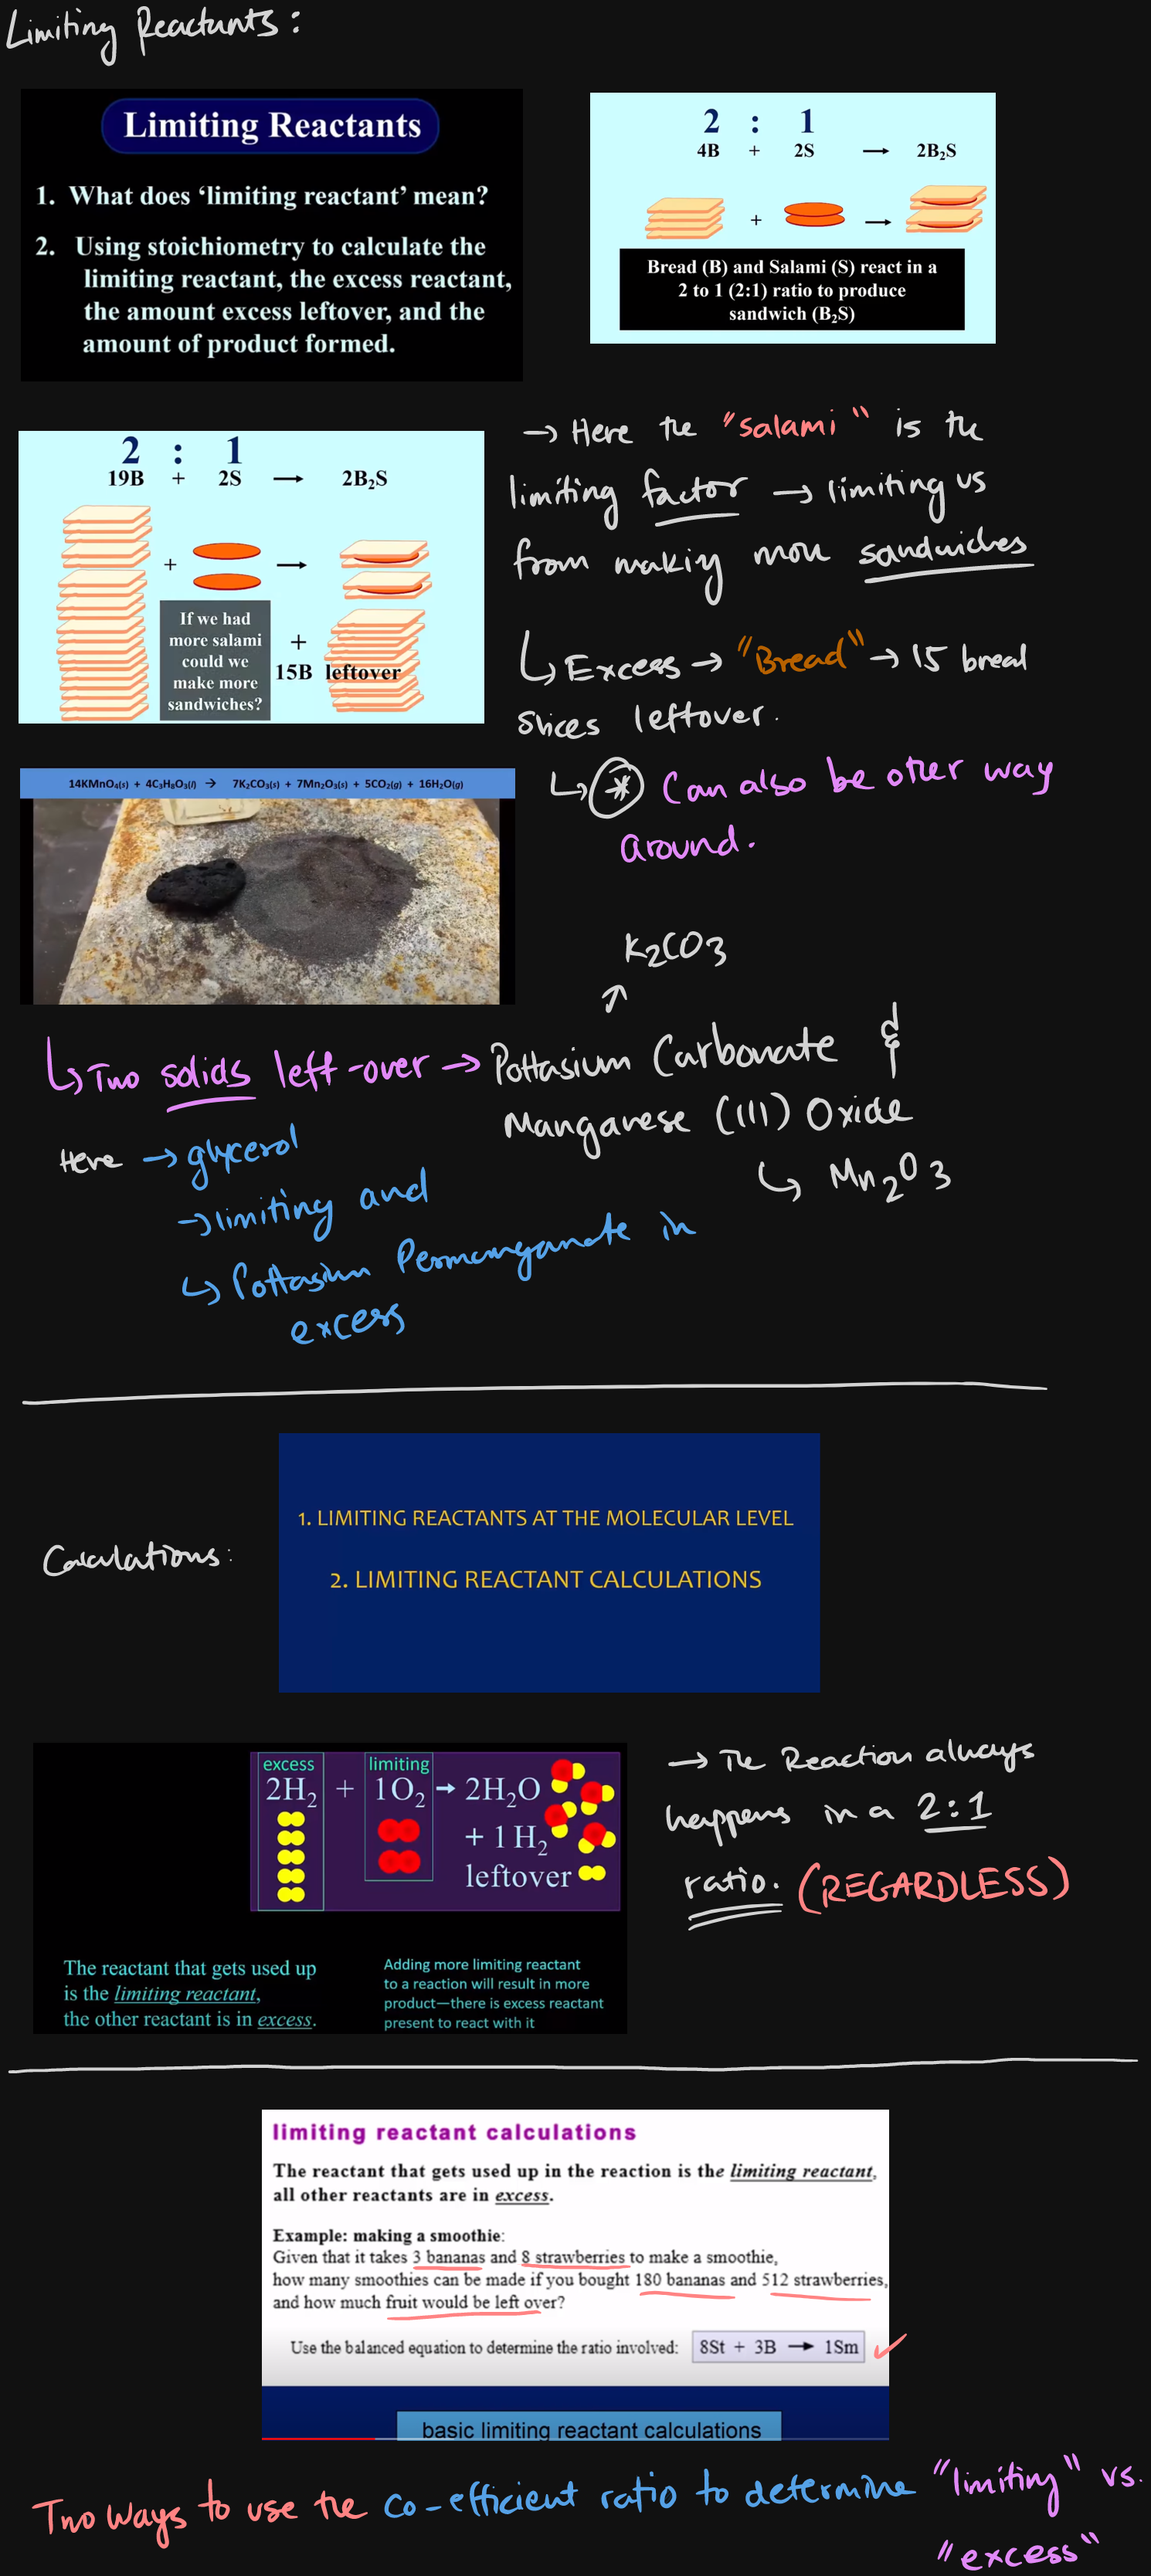 Limiting Reactants:
Limiting Reactants
1. What does ‘limiting reactant’ mean?
2. Using stoichiometry to calculate the
limiting reactant, the excess reactant,
the amount excess leftover, and the
amount of product formed.
2 : 1
4B + 2S → 2B₂S
+ →
Bread (B) and Salami (S) react in a
2 to 1 (2:1) ratio to produce
sandwich (B₂S)
2 : 1
19B + 2S → 2B₂S
+ →
If we had
more salami
could we
make more
sandwiches?
+
15B leftover
→ Here the "salami" is the
limiting factor → limiting us
from making more sandwiches
↳ Excess → "Bread" → 15 bread
slices leftover.
↳ * Can also be other way
around.
14KMnO₄(s) + 4C₃H₈O₃(l) → 7K₂CO₃(s) + 7Mn₂O₃(s) + 5CO₂(g) + 16H₂O(g)
K2CO3
↳ Two solids left-over → Pottasium Carbonate &
Manganese (III) Oxide
↳ Mn2O3
Here → glycerol
→ limiting and
↳ Pottasium Permanganate in
excess
Calculations:
1. LIMITING REACTANTS AT THE MOLECULAR LEVEL
2. LIMITING REACTANT CALCULATIONS
excess limiting
2H₂ + 1O₂ → 2H₂O
+ 1 H₂
leftover
The reactant that gets used up
is the limiting reactant,
the other reactant is in excess.
Adding more limiting reactant
to a reaction will result in more
product—there is excess reactant
present to react with it
→ The Reaction always
happens in a 2:1
ratio. (REGARDLESS)
limiting reactant calculations
The reactant that gets used up in the reaction is the limiting reactant,
all other reactants are in excess.
Example: making a smoothie:
Given that it takes 3 bananas and 8 strawberries to make a smoothie,
how many smoothies can be made if you bought 180 bananas and 512 strawberries,
and how much fruit would be left over?
Use the balanced equation to determine the ratio involved: 8St + 3B → 1Sm
basic limiting reactant calculations
Two ways to use the co-efficient ratio to determine "limiting" vs.
"excess"